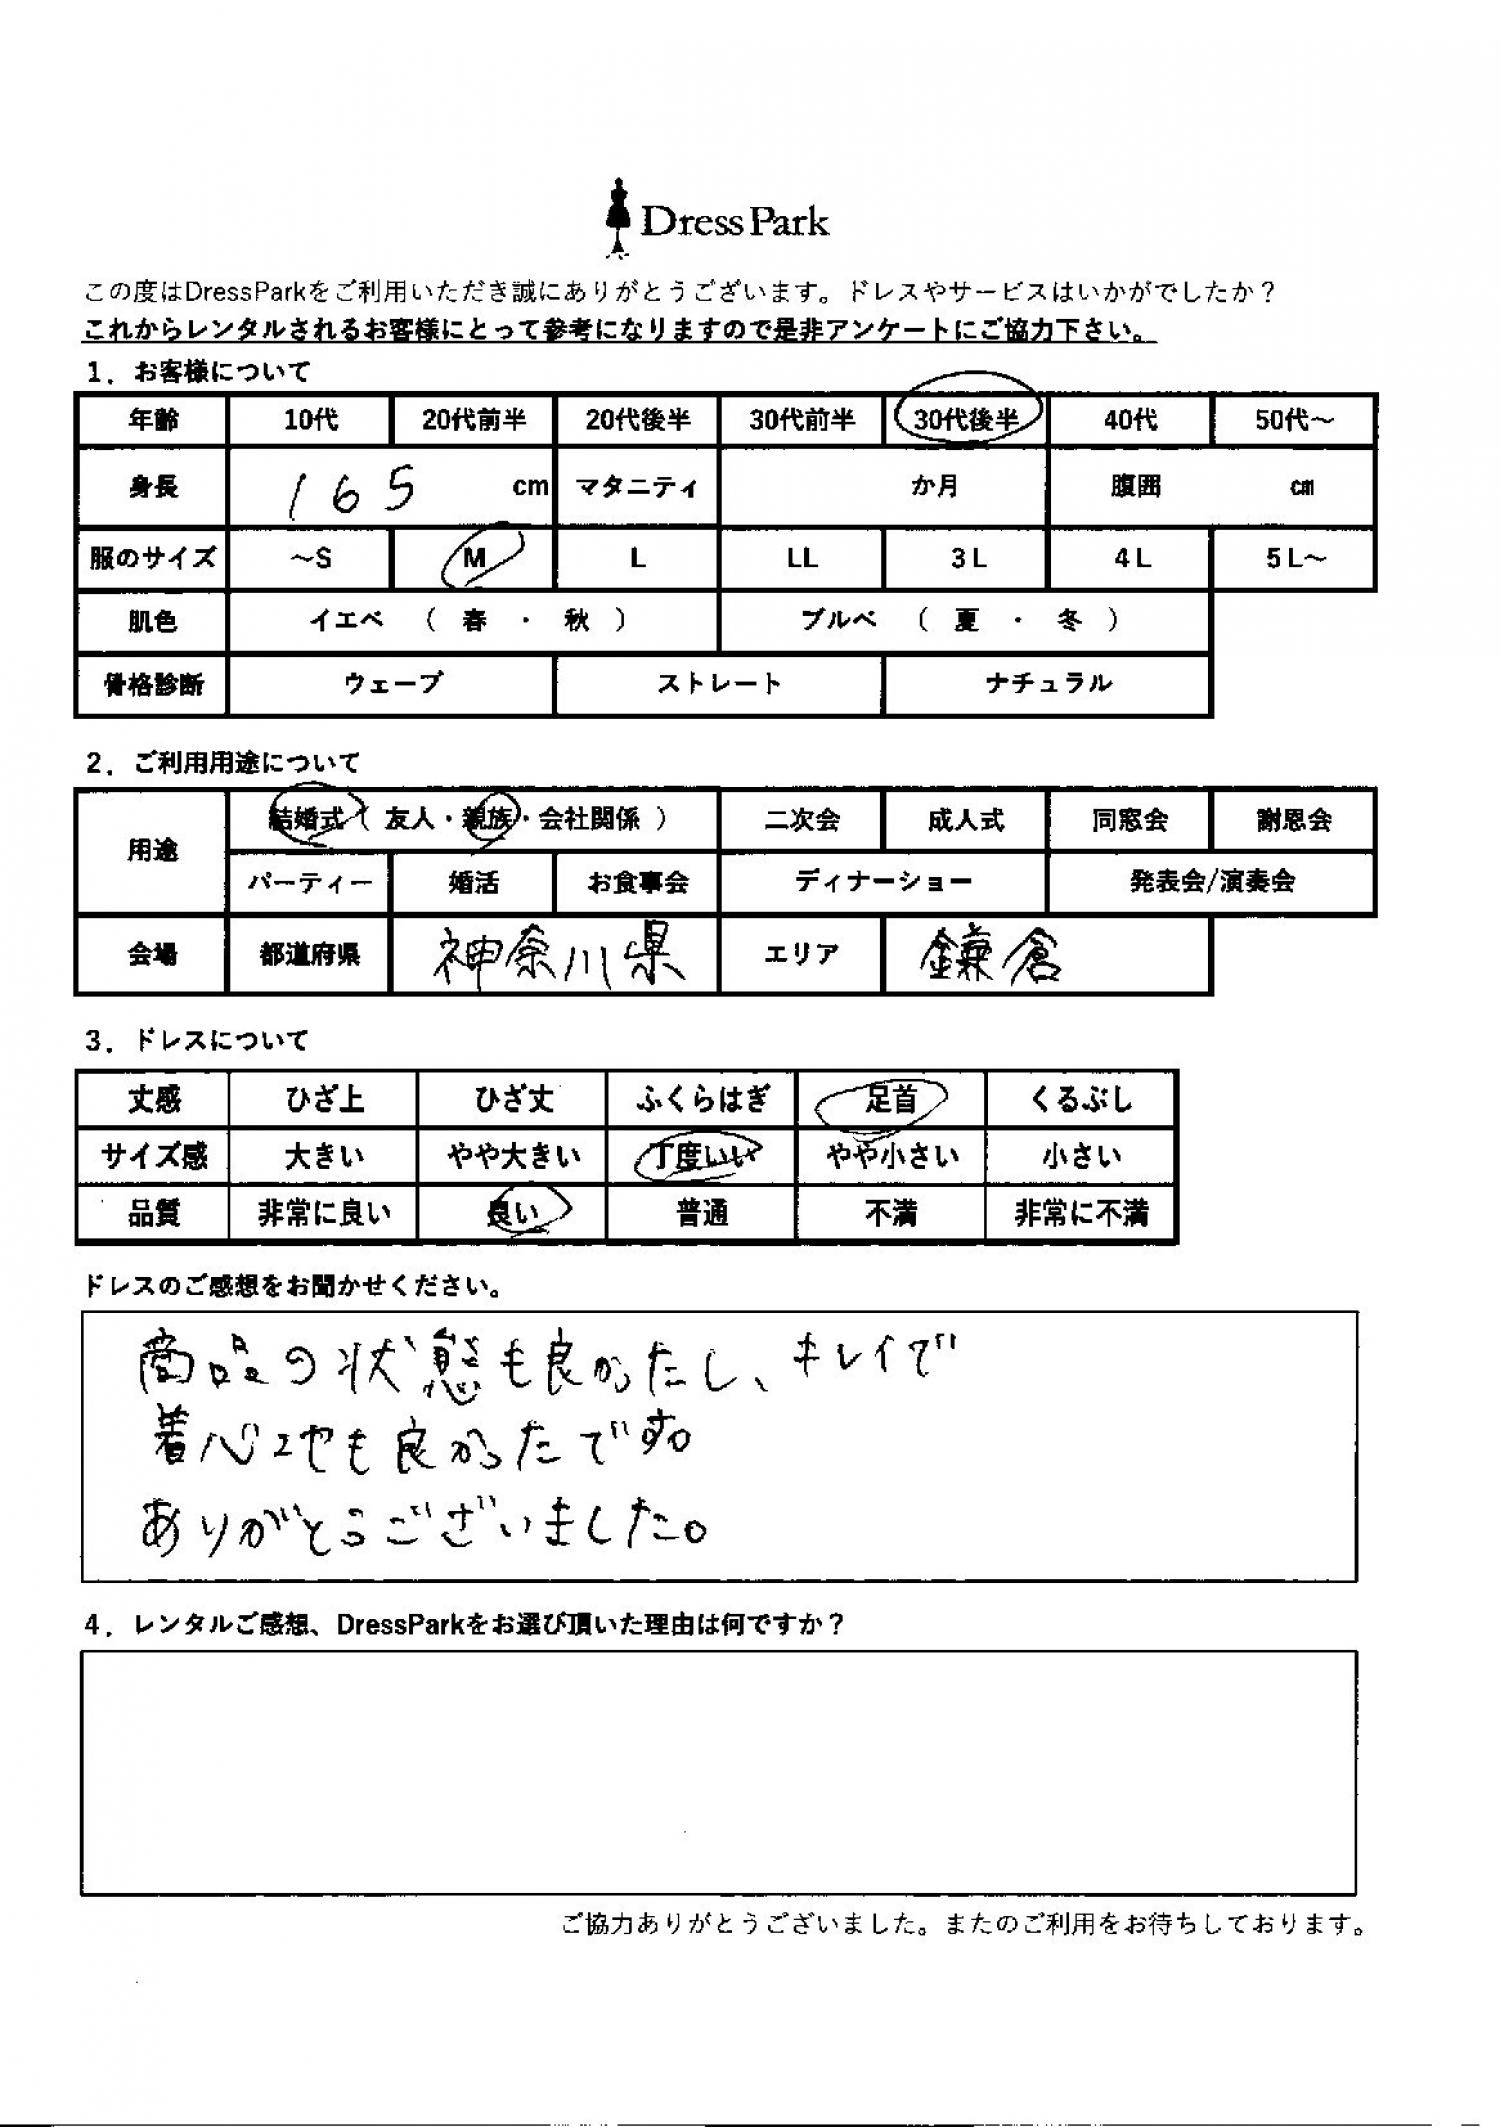 Dress Park
この度はDressParkをご利用いただき誠にありがとうございます。ドレスやサービスはいかがでしたか？
これからレンタルされるお客様にとって参考になりますので是非アンケートにご協力下さい。
1．お客様について
年齢 10代 20代前半 20代後半 30代前半 30代後半 40代 50代～
身長 165 cm マタニティ か月 腹囲 cm
服のサイズ ～S M L LL 3L 4L 5L～
肌色 イエベ （ 春 ・ 秋 ） ブルベ （ 夏 ・ 冬 ）
骨格診断 ウェーブ ストレート ナチュラル
2．ご利用用途について
用途 結婚式（ 友人・親族・会社関係 ） 二次会 成人式 同窓会 謝恩会
パーティー 婚活 お食事会 ディナーショー 発表会/演奏会
会場 都道府県 神奈川県 エリア 鎌倉
3．ドレスについて
丈感 ひざ上 ひざ丈 ふくらはぎ 足首 くるぶし
サイズ感 大きい やや大きい 丁度いい やや小さい 小さい
品質 非常に良い 良い 普通 不満 非常に不満
ドレスのご感想をお聞かせください。
商品の状態も良かったし、キレイで
着心地も良かったです。
ありがとうございました。
4．レンタルご感想、DressParkをお選び頂いた理由は何ですか？
ご協力ありがとうございました。またのご利用をお待ちしております。